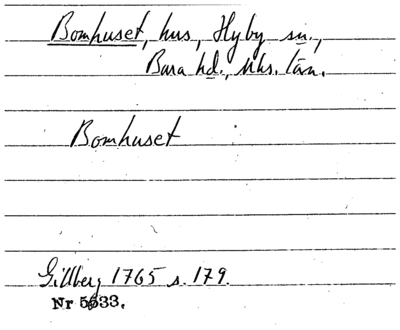 Bomhuset, hus, Hyby sn.,
Bara hd., Mhs. län.
Bomhuset
Gillberg 1765 s. 179.
Nr 5933.